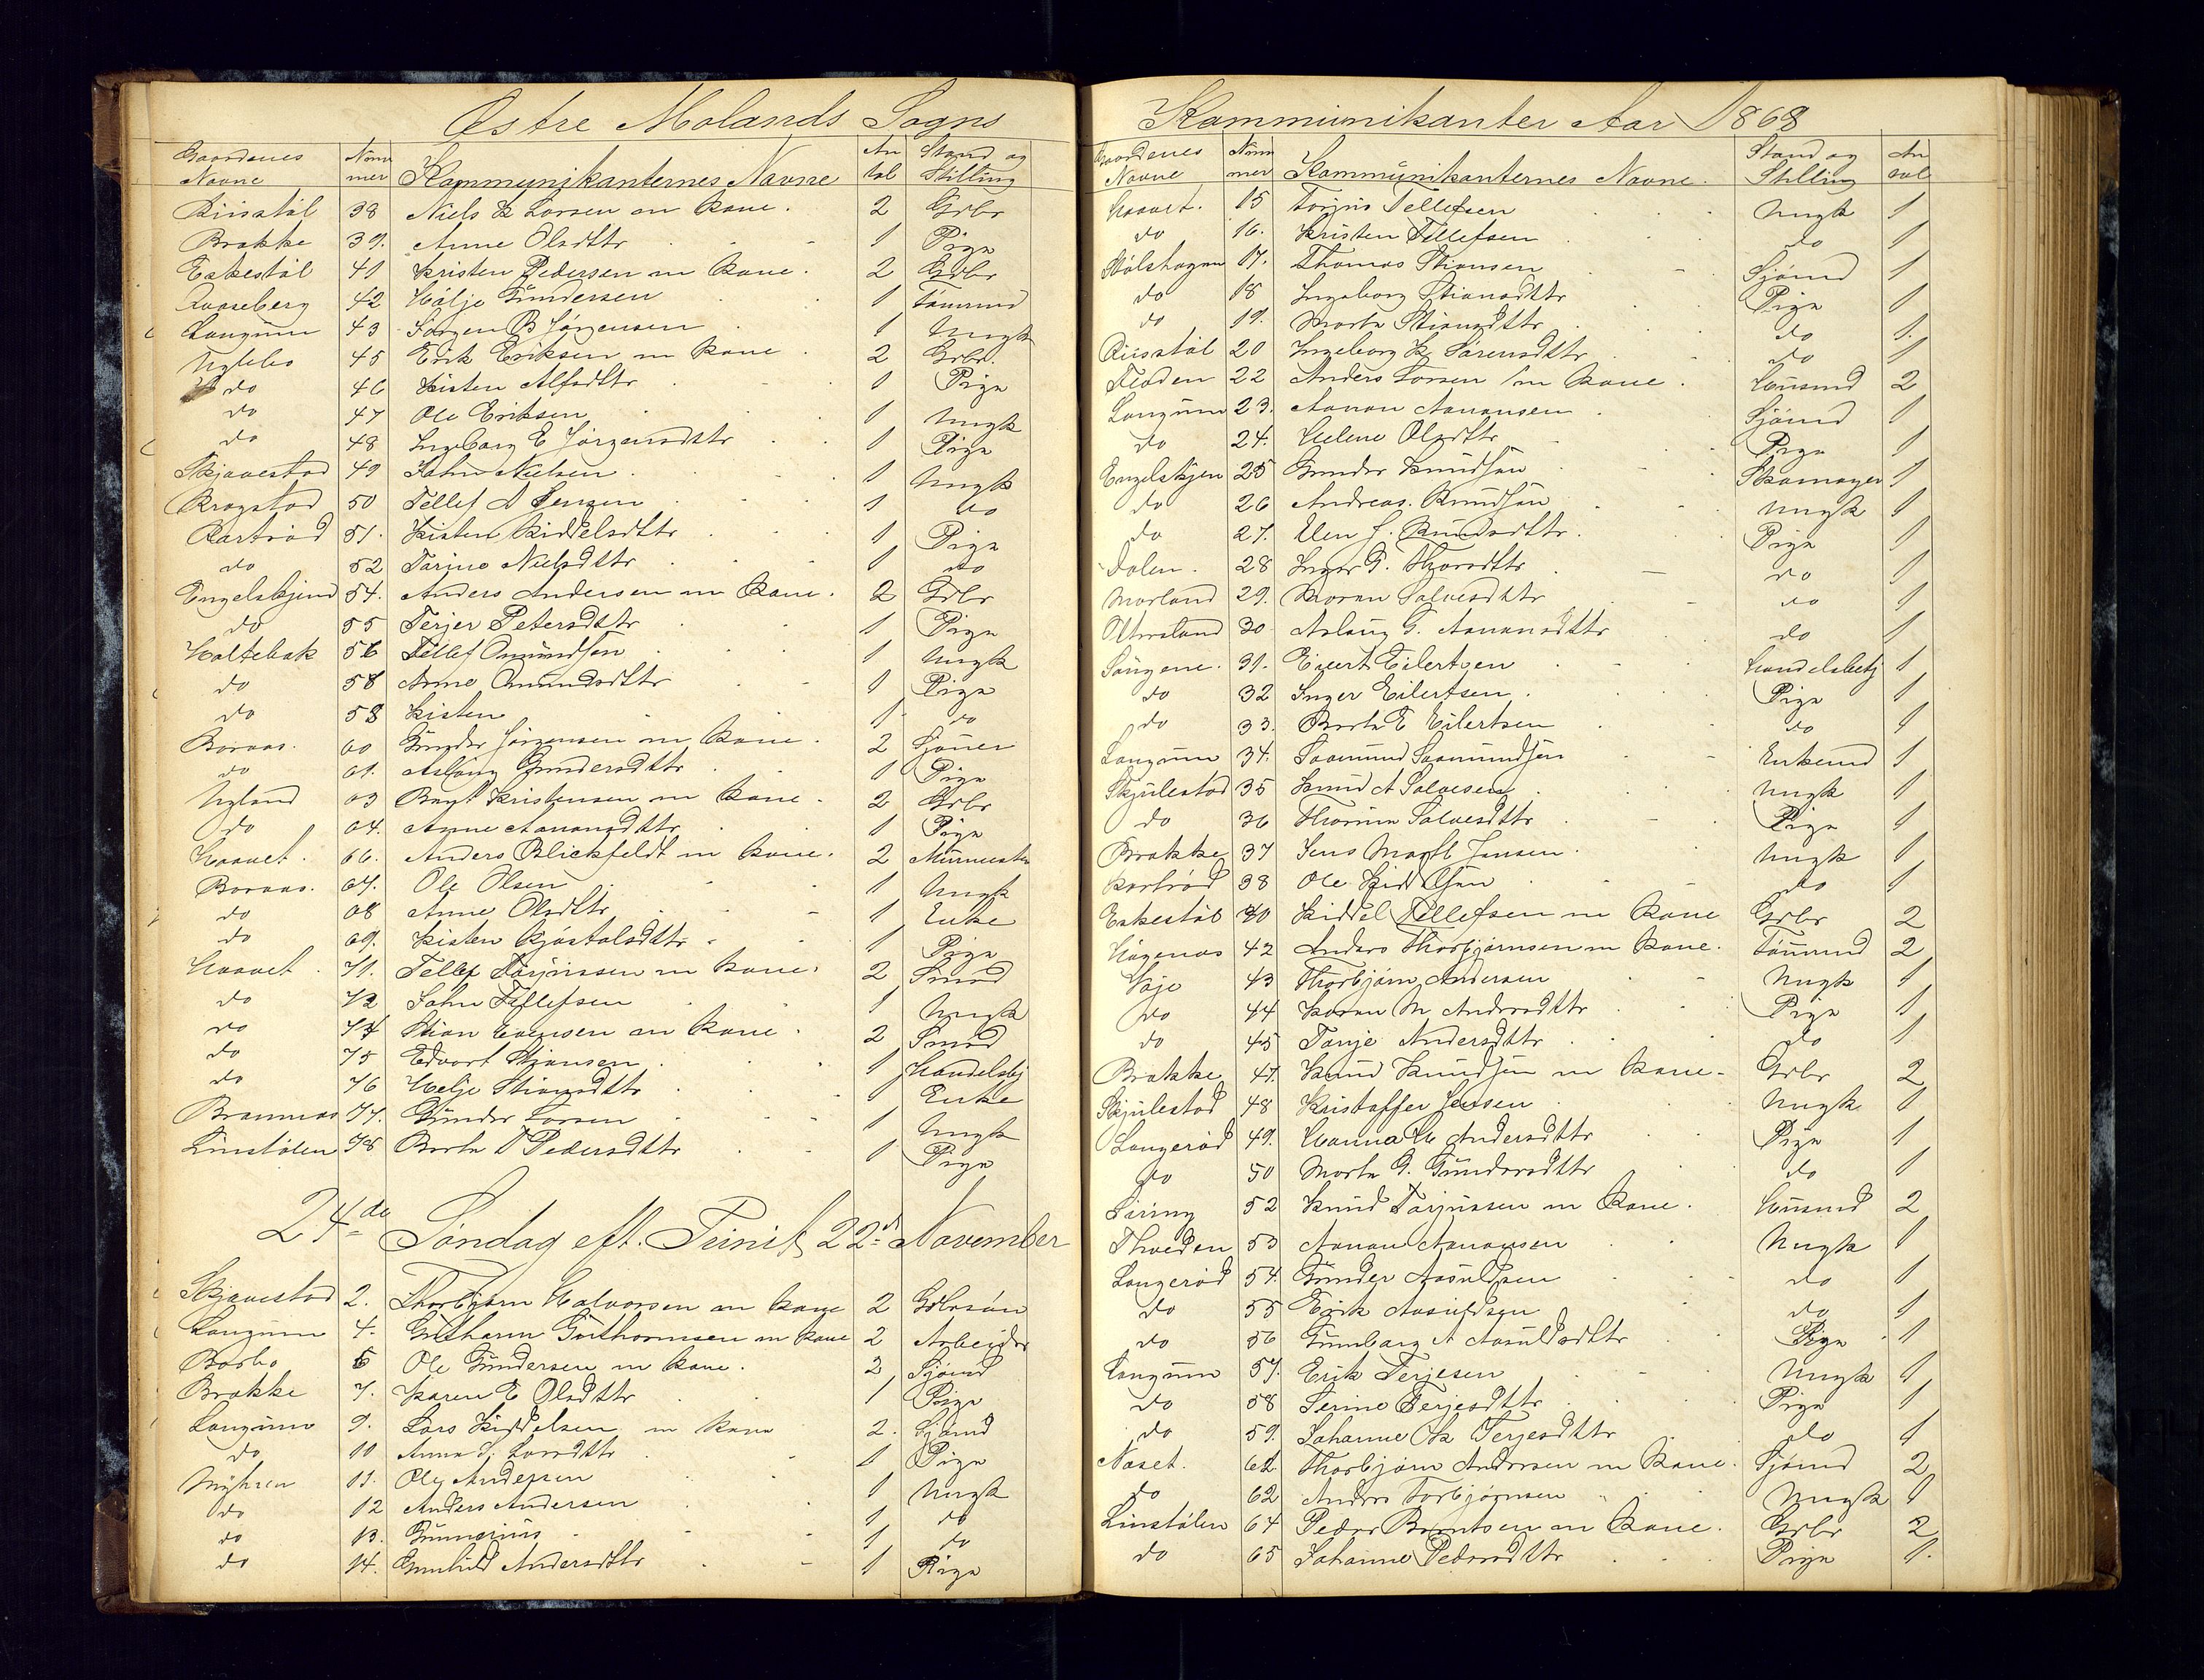 Østre Molands Sogns
Gaardenes Navne Nummer Kommunikanternes Navne Antal Stand og Stilling
Riisstøl 38 Niels K Larsen m Kone. 2 Grbr
Brække 39. Anne Olsdttr 1 Pige
Eskestøl 41 Kristen Pedersen m Kone. 2 Grbr
42 Gundersen 1 Tømmd
Langum 43 Jørgen B Jørgensen 1 Ungk
45 Erik Eriksen m Kone 2 Grbr.
do 46 Kisten Alfsdttr 1 Pige
do 47 Ole Eriksen 1 Ungk
do 48 Ingeborg E Jørgensdttr 1 Pige
Skjævestad 49 John Nielsen 1 Ungk
Kragstad 50 Tellef A Jensen 1 do
Kartrød 51. Kisten Kiddelsdttr 1 Pige
do 52 Tarine Nielsdttr 1 do
Engelskjend 54. Anders Andersen m Kone. 2 Grbr
do 55 Terjer Petersdttr 1 Pige
Holtebæk 56 Tellef Omundsen 1 Ungk
do 58 Anne Omundsdttr 1 Pige
do 58 Kisten 1 do
Boraas. 60 Gunder Jørgensen m Kone. 2
do 61. Aslaug Gundersdttr 1 Pige
Nyland 63 Bent Kristensen m Kone. 2 Grbr
do 64. Anne Aanonsdttr 1 Pige
Haavet. 66. Anders Blickfeldt m Kone. 2 Murmester
Boraas. 67. Ole Olsen 1 Ungk
do 68 Anne Olsdttr 1 Enke
do 69. Kisten Kjøstolsdttr 1 Pige
Haavet. 71. Tellef Torjussen m Kone. 2 Smed
do 72 John Tellefsen 1 Ungk
do 74 Stian Evensen m Kone. 2 Smed
do 75 Edvart Stiansen 1 Handelsbj
do 76 Helje Stiansdttr 1 Enke
77. Gunder Larsen 1 Ungk
Linstølen 78 Berte T Pedersdttr 1 Pige
24de Søndag eft. Trinit, 22d November
Skjævestad 2. Thorbjørn Halvorsen m Kone 2 Grbrsøn
Langum 4. Guthorm Guthormsen m Kone 2 Arbeider
Barbo 6 Ole Gundersen m Kone. 2 Sjømd
Brække 7. Karen E Olsdttr 1 Pige
Langum 9. Lars Kiddelsen m Kone 2. Sjømd
do 10 Anne Larsdttr 1 Pige
Myhren 11. Ole Andersen 1 Ungk
do 12 Anders Andersen 1 do
do 13. Gunnerius 1 do
do 14. Gunhild Andersdttr 1 Pige
Kommunikanter Aar 1868
Gaardenes Navne Nummer Kommunikanternes Navne. Stand og Stilling Antal
Haavet. 15 Torjus Tellefsen Ungk 1
do 16. Kristen Tellefsen do 1
Stølshagen 17. Thomas Stiansen Sjømd 1
do 18 Ingeborg Stiansdttr Pige 1
do 19. Marte Stiansdttr do 1.
Riisstøl 20 Ingeborg K Sørensdttr do 1
Fløden 22 Anders Larsen m Kone. Husmd 2
Langum 23. Aanon Aanonsen Sjømd 1
do 24. Helene Olsdttr Pige 1
Engelskjen 25 Gunder Knudsen Skomager 1
do 26 Andreas Knudsen Ungk 1
do 27. Elen J. Knudsdttr. Pige 1
Dalen. 28 Inger G. Thorsdttr do 1
Morland 29. Karen Salvesdttr do 1
30 Aslaug G. Aanonsdttr do 1
Songene. 31. Evert Eilertsen Handelsbetj 1
do 32 Inger Eilertsen. Pige 1
do 33. Berte E Eilertsen do 1
Langum 34. Saamund Saamundsen Enkemd 1
Skjulestad 35 Knud A Salvesen Ungk 1
do 36 Thorine Salvesdttr Pige 1
Brække 37 Jens Jensen. Ungk 1
Kartrød 38 Ole Kiddelsen do 1
Eskestøl 40 Kiddel Tellefsen m Kone Grbr 2
Hagenæs 42 Anders Thorbjørnsen m Kone. Tømmd 2
43 Thorbjørn Andersen Ungk 1
do 44 Karen M Andersdttr Pige 1
do 45 Tonje Andersdttr do 1
Brække 47. Knud Knudsen m Kone. Grbr 2
Skjulestad 48 Kristoffer Jensen Ungk 1
Langerød 49. Hanna M Andersdttr Pige 1
do 50 Marte G. Gundersdttr do 1
52 Knud Torjussen m Kone. Husmd 2
Thveden 53 Aanon Aanonsen Ungk 1
Langerød 54. Gunder Aasulfsen do 1
do 55 Erik Aasulfsen do 1
do 56 Gunborg A Aasulfsdttr Pige 1
Langum 57. Erik Terjesen Ungk 1
do 58 Serine Terjesdttr Pige 1
do 59. Johanne K Terjesdttr do 1
Næset. 62 Thorbjørn Andersen m Kone. Sjømd 2
do 62 Anders Torbjørnsen Ungk 1
Linstølen 64 Peder Berntsen m Kone. Grbr 2
do 65 Johanne Pedersdttr Pige 1.